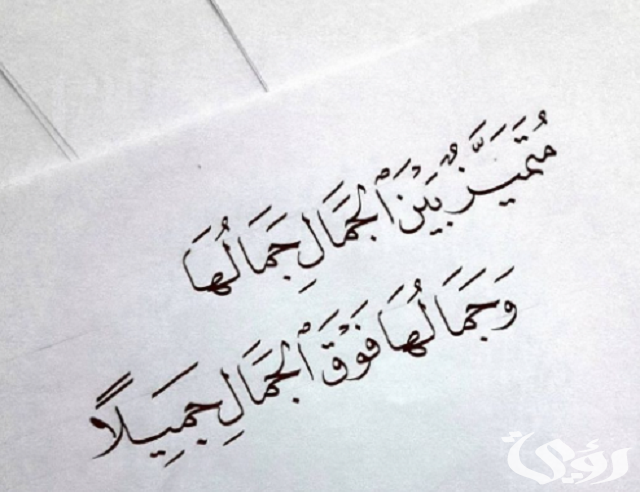 مُتَمَيَّزٌ بَيْنَ ٱلْجَمَالِ جَمَالُهَا
وَجَمَالُهَا فَوْقَ ٱلْجَمَالِ جَمِيلًا
رؤى